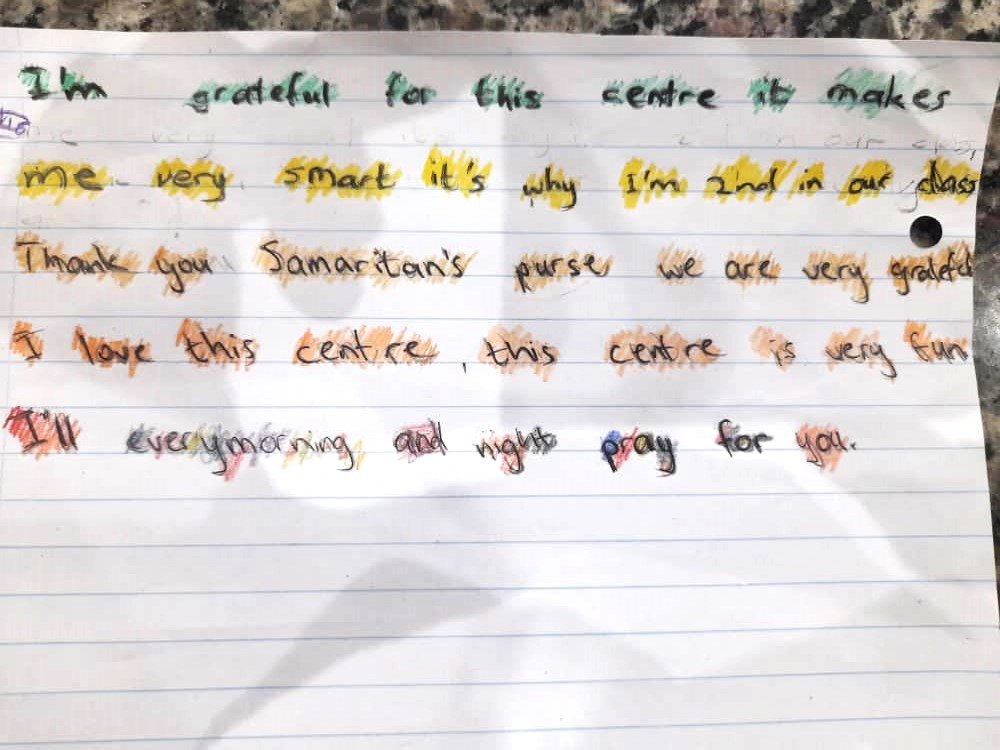 I'm grateful for this centre it makes
me very smart it's why I'm 2nd in our class
Thank you Samaritan's purse we are very grateful
I love this centre, this centre is very fun
I'll everymorning and night pray for you.